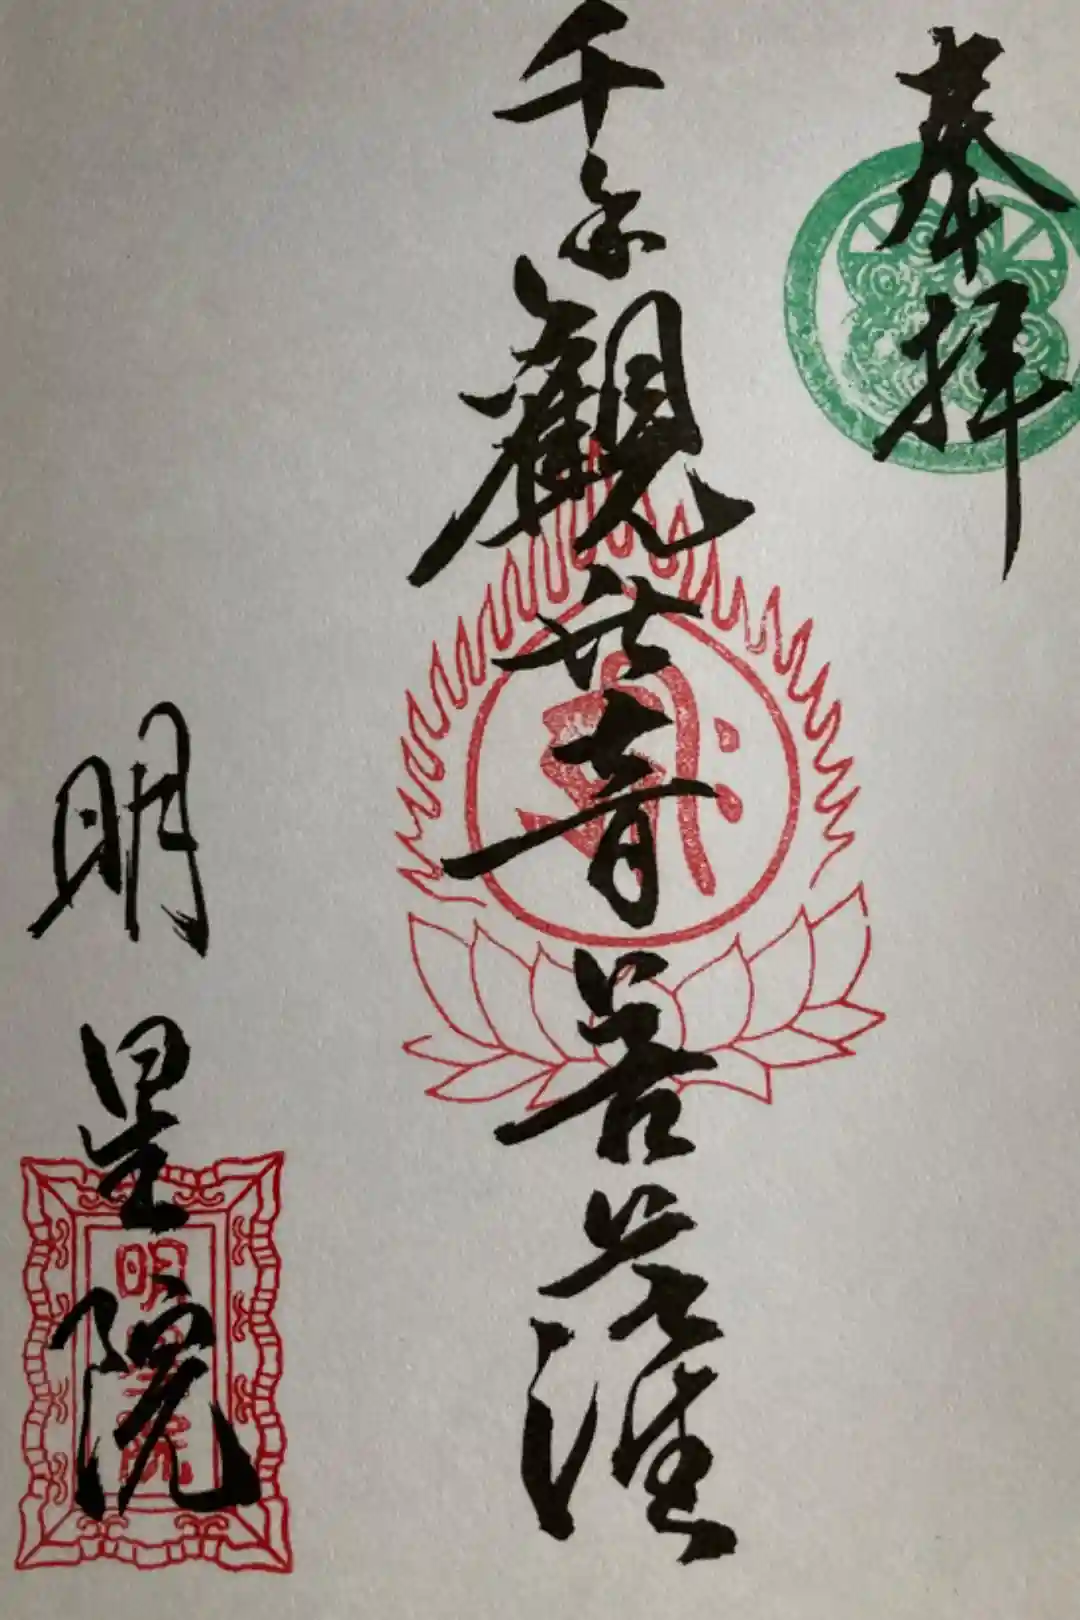 奉拝
千手觀世音菩薩
明星院
明星院